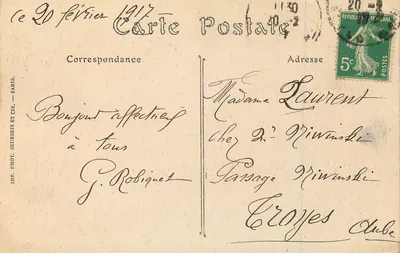 ce 20 février 1917
Carte Postale
Correspondance
Adresse
Bonjour affectueux
à tous
G. Robiquet
Madame Laurent
chez Mr Niwinski
Passage Niwinski
Troyes
Aube
RÉPUBLIQUE FRANÇAISE
5c
POSTES
IMP. PHOT. NEURDEIN ET CIE. — PARIS.